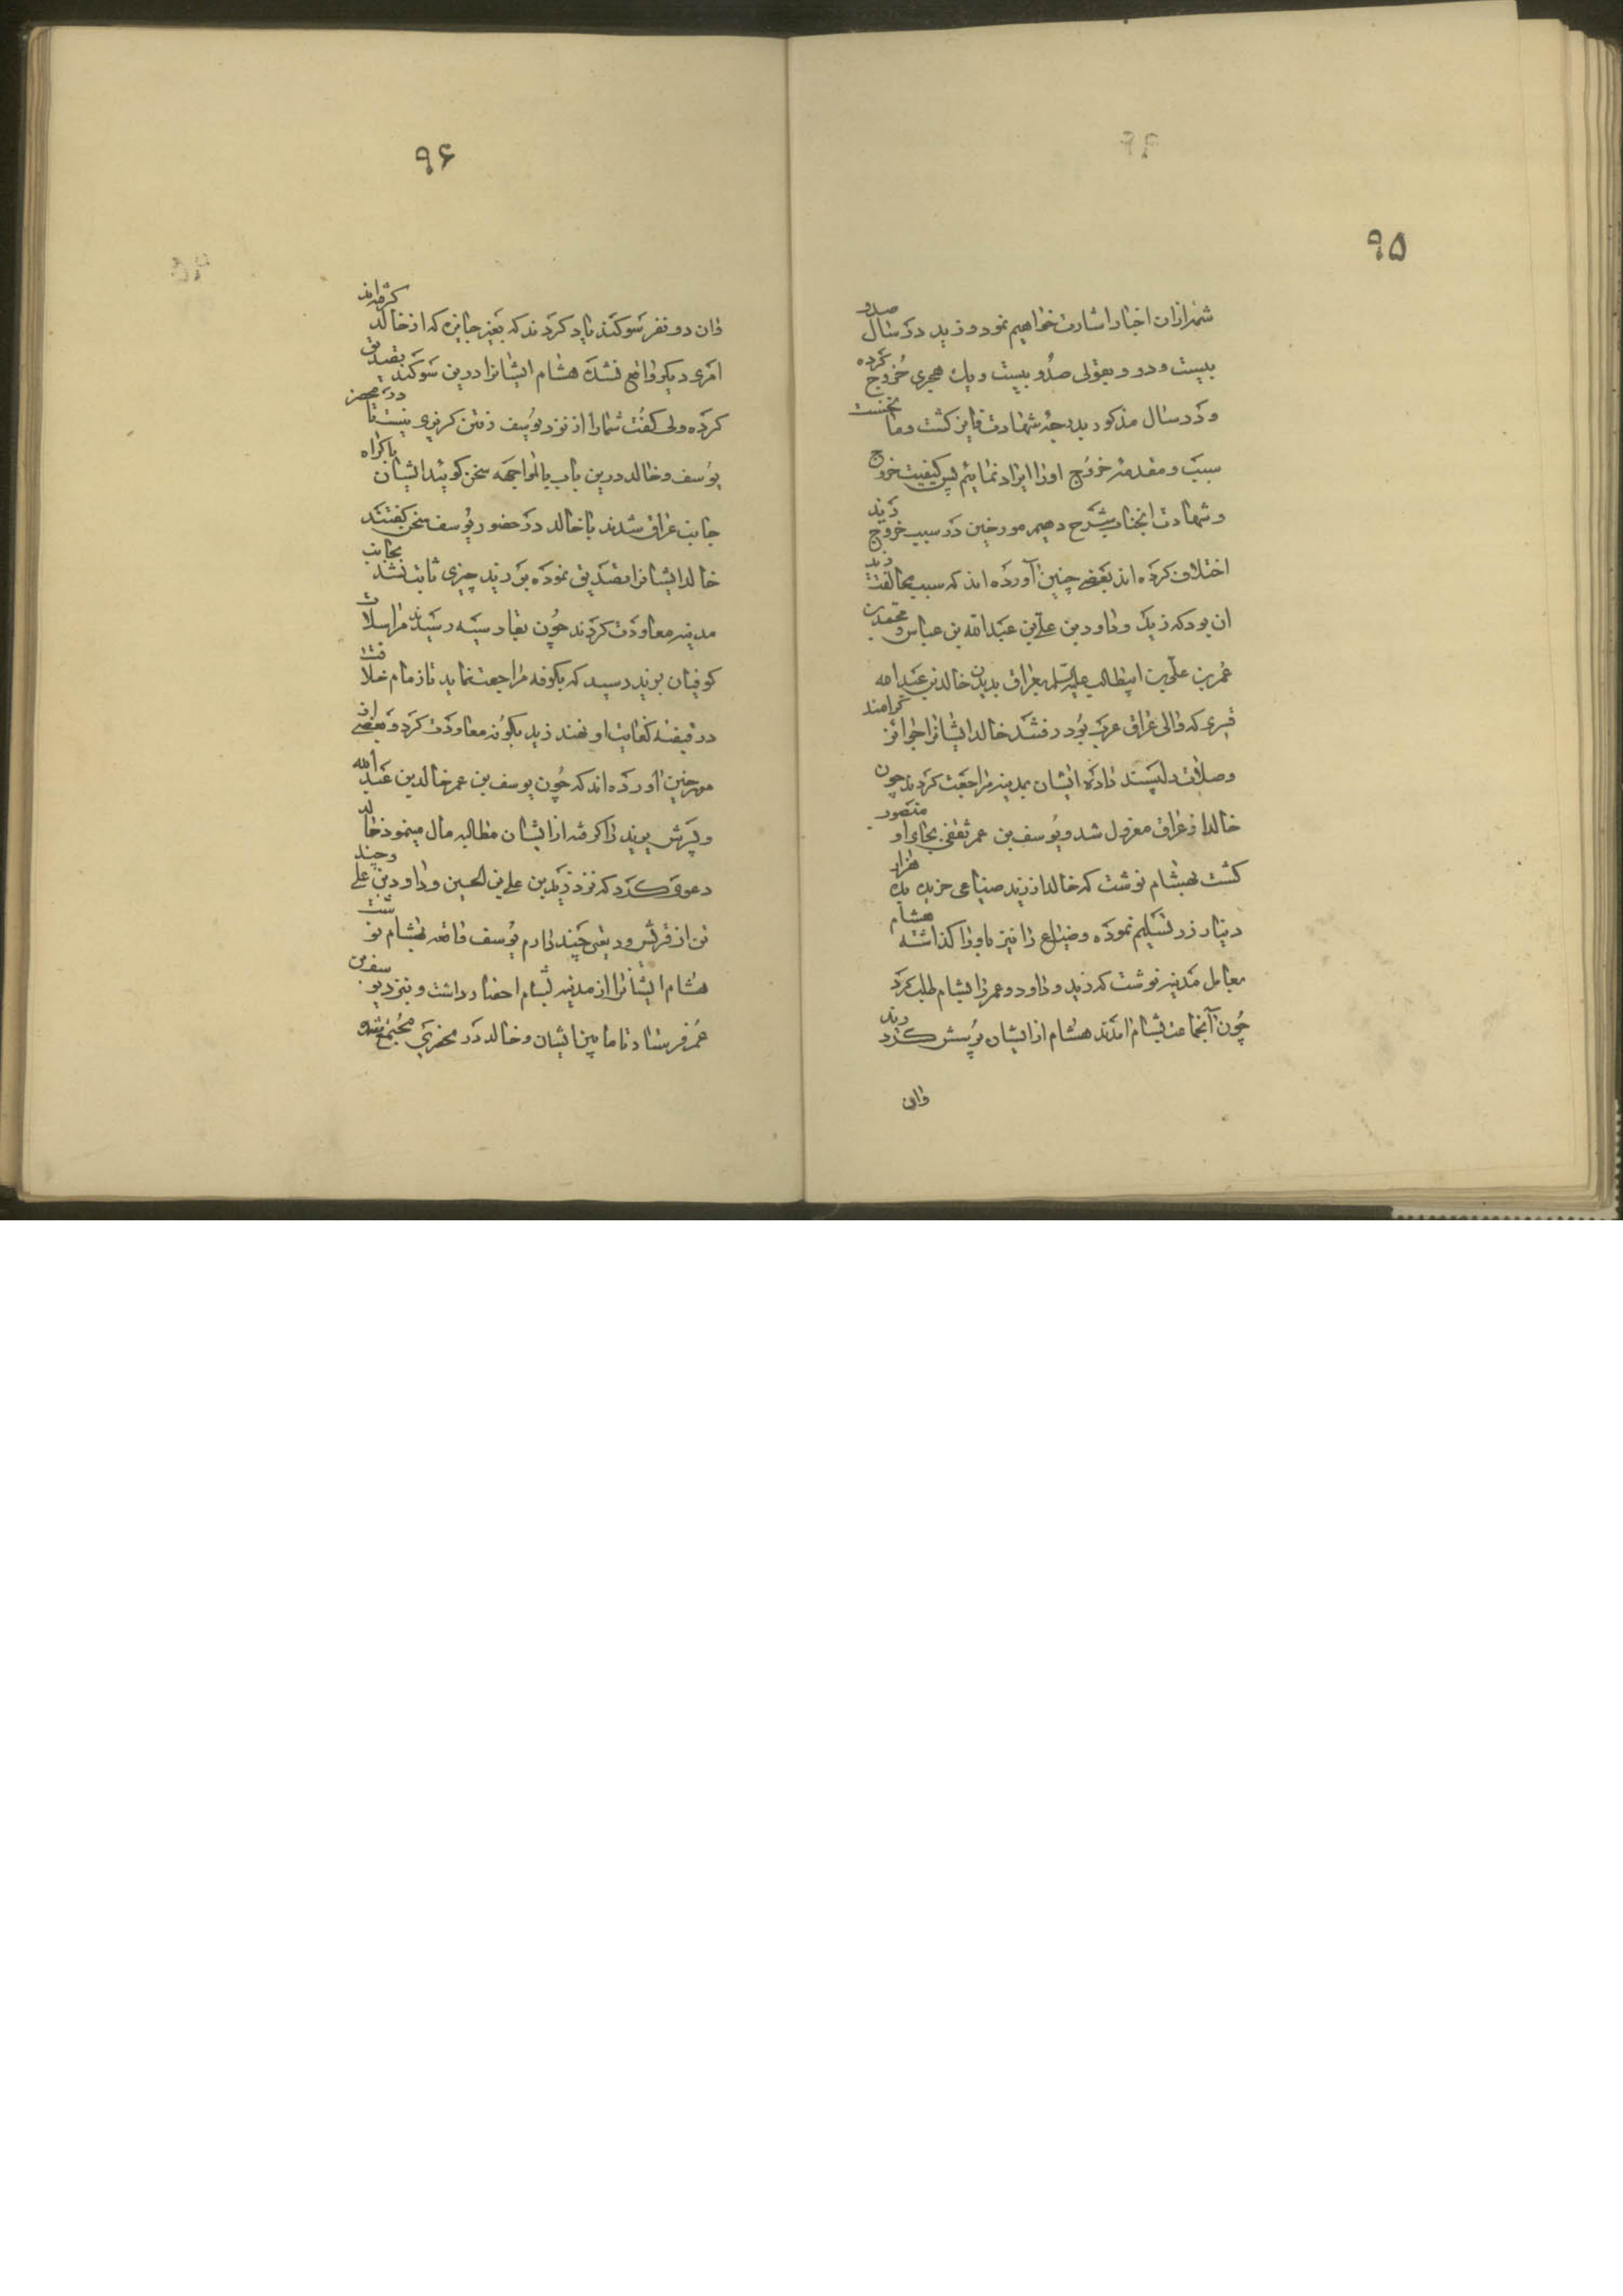 ۹۵
شمهٔ ازان اخبار اشارت خواهیم نمود و زید در سال صد و
بیست و دو و بقولی صد و بیست و یک هجری خروج کرده
و در سال مذکور بدرجهٔ شهادت فایز گشت و ما نخست
سبب و مقدمهٔ خروج او را ایراد نمائیم پس کیفیت خروج
و شهادت انجناب بشرح دهیم مورخین در سبب خروج زید
اختلاف کرده اند بعضی چنین آورده اند که سبب مخالفت زید
ان بود که زید و داود بن علی بن عبدالله بن عباس و محمد بن
عمر بن علی بن ابیطالب علیه السلم بعراق بدیدن خالد بن عبدالله
قسری که والی عراق عرب بود رفتند خالد ایشانرا جوائز گرامند
و صلات دلپسند داده ایشان بمدینه مراجعت کردند چون
خالد از عراق معزول شد و یوسف بن عمر ثقفی بجای او منصور
گشت بهشام نوشت که خالد از زید ضیاعی خرید بده هزار
دینار زر تسلیم نموده و ضیاع را نیز باو وا گذاشته هشام
بعامل مدینه نوشت که زید و داود و عمر را بشام طلب کرد
چون آنجماعت بشام امدند هشام از ایشان پرسش کردند
وان
۹۶
وان دو نفر سوکند یاد کردند که بغیر جایزه که از خالد گرفته اند
امری دیکر واقع نشده هشام ایشانرا درین سوکند تصدیق
کرده ولی کفت شما را از نزد یوسف رفتن کریزی نیست تا در محضر
یوسف و خالد درین باب بالمواجهه سخن کوئید ایشان باکراه
جانب عراق شدند با خالد در حضور یوسف سخن کفتند
خالد ایشانرا تصدیق نموده بر زید چیزی ثابت نشد بجانب
مدینه معاودت کردند چون بقادسیه رسیدند مراسلات
کوفیان بزید رسید که بکوفه مراجعت نماید تا زمام خلافت
در قبضه کفایت او نهند زید بکوفه معاودت کرد و بعضی از
مورخین اورده اند که چون یوسف بن عمر خالد بن عبدالله
و پسرش یزید را کرفته از ایشان مطالبه مال مینمود خالد
دعوی کرد که نزد زید بن علی بن الحسین و داود بن علی و چند
تن از قریش ودیعتی چند دارم یوسف واقعه بهشام نوشت
هشام ایشانرا از مدینه بشام احضار داشت و بنزد یوسف بن
عمر فرستاد تا ما بین ایشان و خالد در محضری مجتمع شده